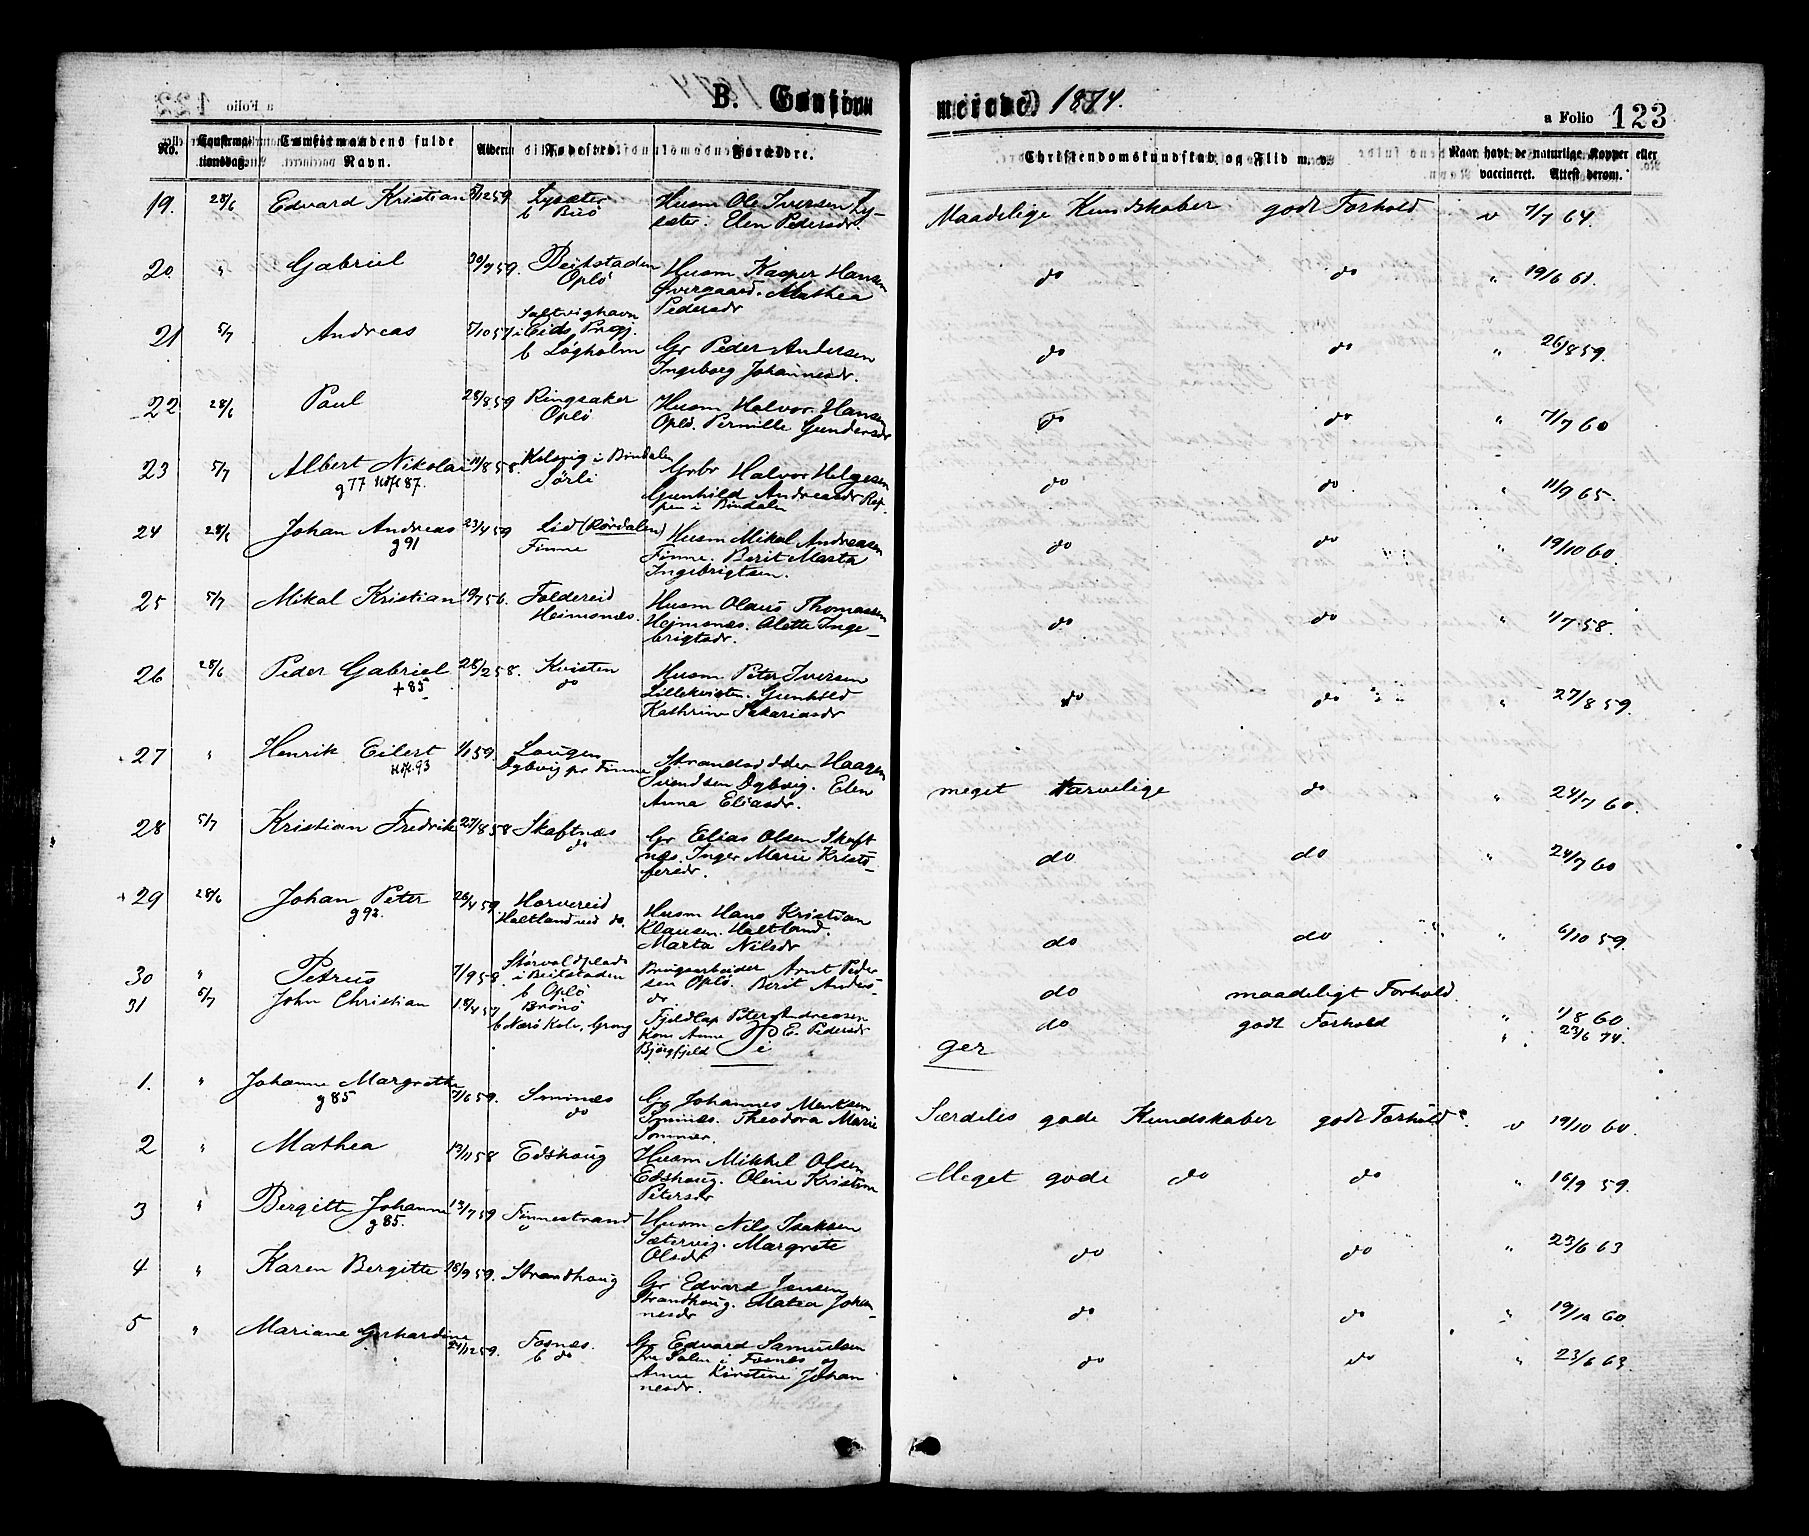 B. Confirmerede. 1874. a Folio 123
No. Confirmationsdag. Confirmandens fulde Navn. Alderen Fødested. Forældre. Christendomskundskab og Flid m. v. Naar havt de naturlige Kopper eller vaccineret. Attest derom.
19. 28/6 Edvard Kristian 5/12 59 Lysæter Husm Ole Iversen Ly- Maadelige Kundskaber godt Forhold v 7/7 64.
sæter. Elen Pedersdr.
20. " Gabriel 30/7 59. Beitstaden Husm Kasper Hansen do do " 19/6 61.
Oplö Øvergaard. Mathea
Pedersdr
21 5/7 Andreas 5/10 57 i Eids Prgj. Gr Peder Andersen do do " 26/8 59.
b Løgholm Ingeborg Johannesdr.
22 28/6 Paul 28/8 59 Ringsaker Husm Halvor Hansen do do " 7/7 60
Oplö Oplö. Pernille Gundersdr
23 5/7 Albert Nikolai 11/8 58. i Bindalen Grbr Halvor Helgesen do do " 11/9 65.
g 77 Sörli Gunhild Andreasdr
i Bindalen
24 28/6 Johan Andreas 23/4 59 Lid (Rördalen) Husm Mikal Andreasen do do " 19/10 60.
g 91 Finne Finne. Berit Marta
Ingebrigtsen.
25 5/7 Mikal Kristian 19/7 56. Foldereid Husm Olaus Thomassen do do " 1/7 58.
Heimsnæs. Heimsnæs. Olette Inge-
brigtsdr.
26 28/6 Peder Gabriel 28/2 58. Kvisten Husm Peter Iversen do do " 27/8 59.
+ 85 do Lillekvisten. Gunhild
Kathrine Sakariasdr
27 " Henrik Eilert 1/1 59. Laugen Strandsidder Haagen meget tarvelige do " 24/7 60.
93 Dybvig pr Finne Svendsen Dybvig. Elen
Anna Eliasdr.
28 5/7 Kristian Fredrik 27/8 58 Skaftnæs Gr Elias Olsen Skaft do do " 24/7 60
do næs. Inger Marie Kristo-
fersdr.
29 28/6 Johan Peter 26/4 59 Horvereid Husm Hans Kristian do do " 6/10 59.
g 92. Haltlandseid do. Klausen. Haltland.
Marta Nilsdr
30 " Petrus 7/9 58. i Beitstaden Brugsarbeider Arnt Peder do maadeligt Forhold. " 1/8 60.
b Oplö sen Oplö. Berit Anders-
dr
31 5/7 John Christian 18/4 57 Brönö Fjeldlap Peter Andreasen do godt Forhold " 23/6 74.
b Nærö Kolv. Grong Kone Anne E. Pedersdr
Bjørgfjeld
Piger
1. " Johanne Margrethe 7/6 59. Sminæs Gr Johannes Særdeles gode Kundskaber godt Forhold. v 19/10 60.
g 85 do Sminæs. Theodora Marie
Sommer.
2 " Mathea 13/11 58 Edshoug Husm Mikkel Olsen Meget gode do do " 16/9 59.
Edshoug. Oline Kristine
Petersdr
3 " Bergitte Johanne 13/7 59 Finnestrand Husm Nils Isaksen do do " 23/6 63
g 85. Sætervig. Margrete
Olsdr
4 " Karen Bergitte 28/9 59. Strandhoug Gr Edvard Jensen do do " 19/10 60.
Strandhoug. Matea Johan-
nesdr
5 " Mariane Gerhardine 24/12 59. Fosnæs. Gr Edvard Samuelsen do do " 23/6 63.
b do fra Salen i Fosnæs og
Anne Kirstine Johan
nesdr.